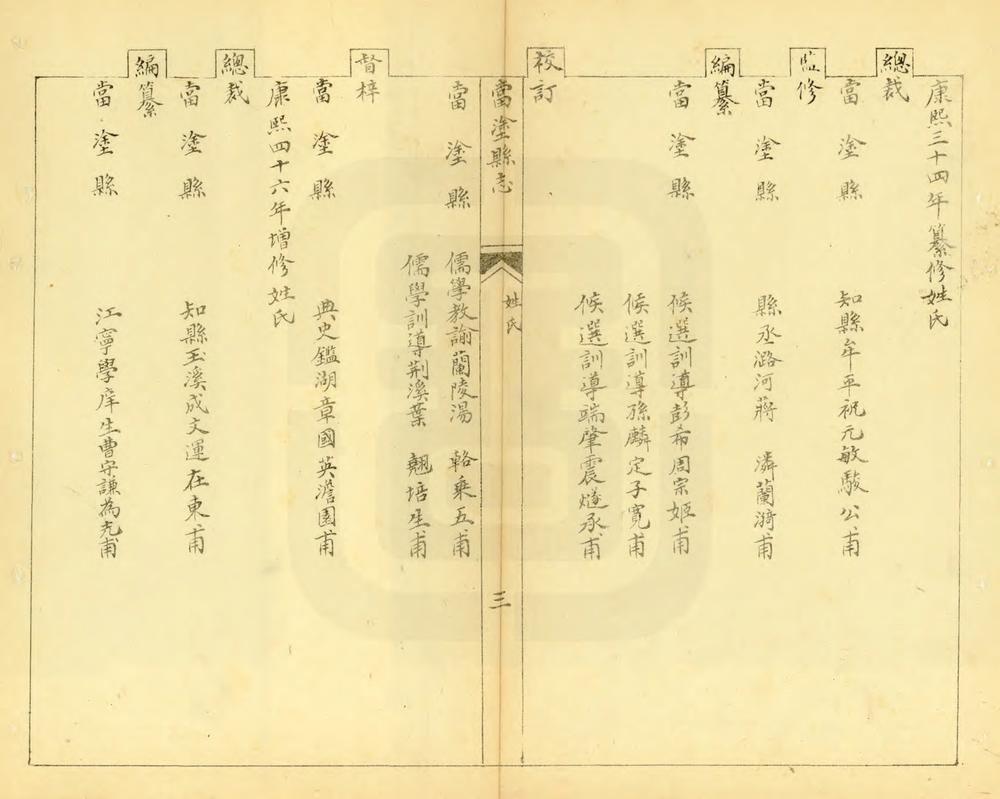 康熙三十四年纂修姓氏
總裁
當塗縣 知縣牟平祝元敏駿公甫
監修
當塗縣 縣丞潞河蔣 潾蘭漪甫
編纂
當塗縣 候選訓導彭希周宗姬甫
候選訓導孫麟定子寬甫
候選訓導端肇震燧承甫
校訂
當塗縣志 姓氏 三
當塗縣 儒學教諭蘭陵湯 輅乘五甫
儒學訓導荆溪葉 翹培生甫
督梓
當塗縣 典史鑑湖章國英澹園甫
康熙四十六年增修姓氏
總裁
當塗縣 知縣玉溪成文運在東甫
編纂
當塗縣 江寧學庠生曹守謙為光甫